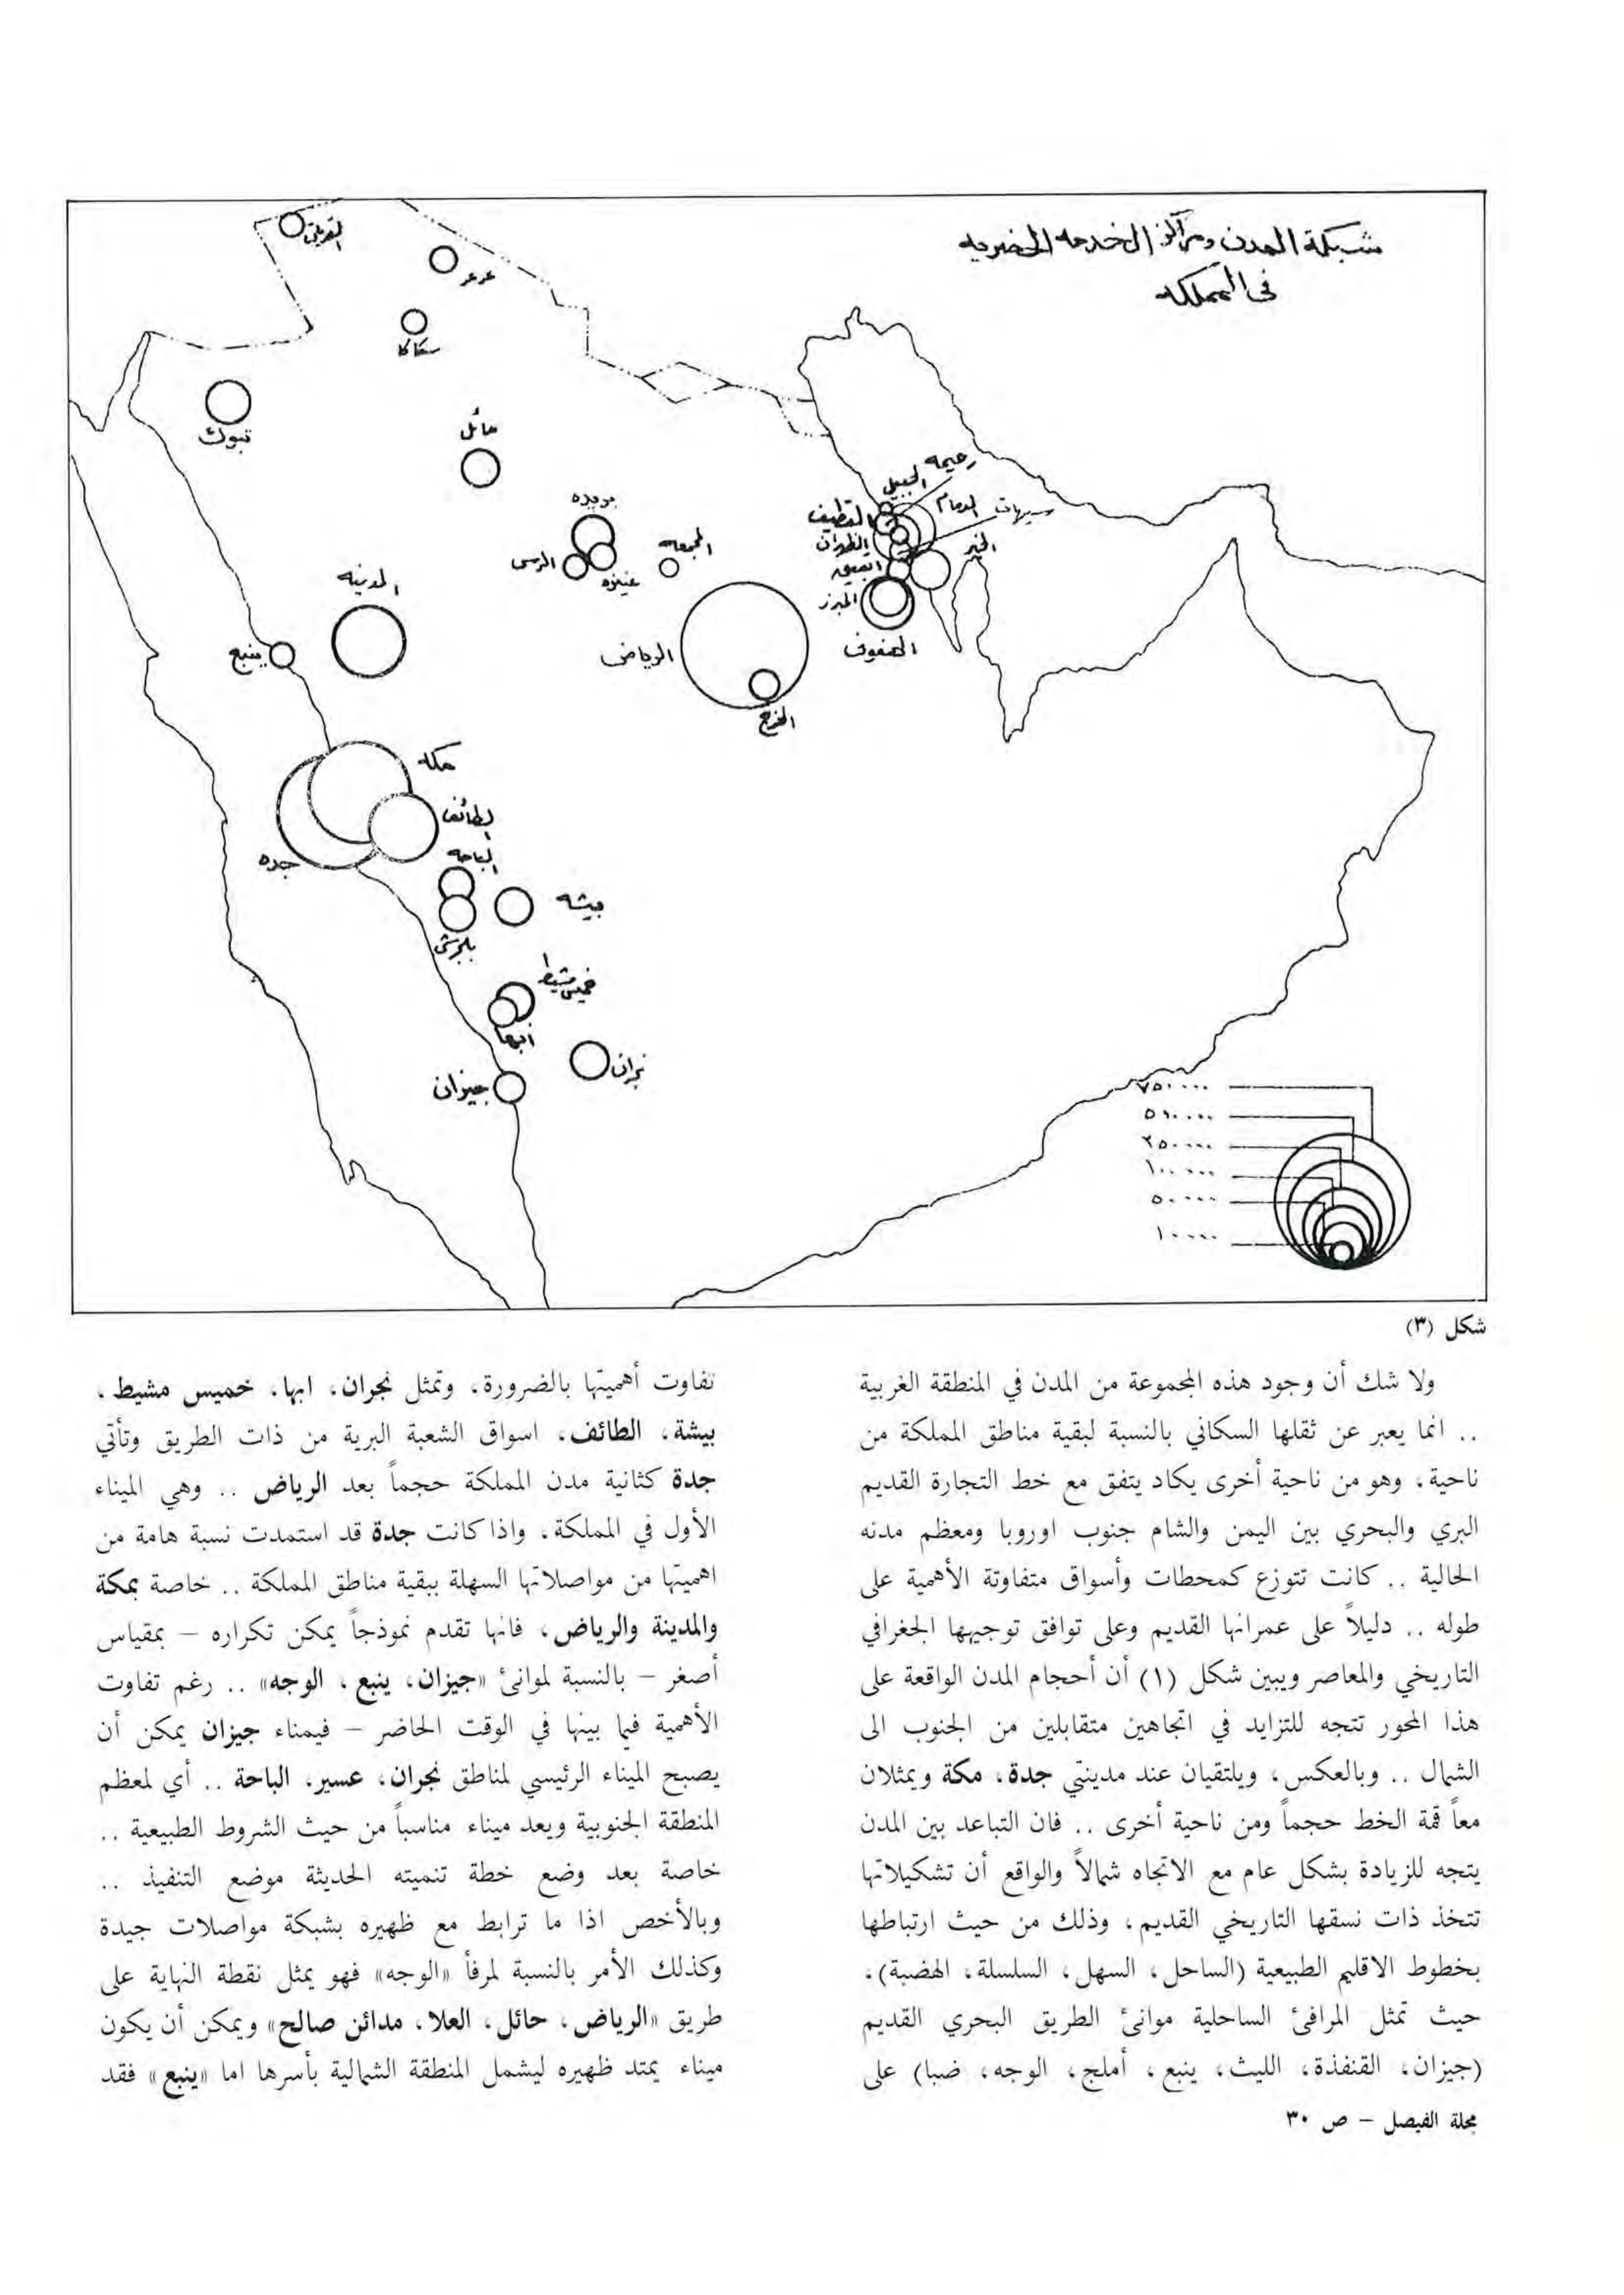 شبكة المدن ومراكز الخدمه الحضريه
في المملكه
القريات
عرعر
سكاكا
تبوك
حائل
بريده
الرس
عنيزه
المجمعه
رحيمه
الجبيل
الدمام
سيهات
القطيف
الظهران
الخبر
ابقيق
المبرز
الهفوف
المدينه
ينبع
الرياض
الخرج
مكه
الطائف
جده
الباحه
بيشه
بلجرشي
خميس مشيط
ابها
نجران
جيزان
٧٥٠٠٠٠
٥٠٠٠٠٠
٢٥٠٠٠٠
١٠٠٠٠٠
٥٠٠٠٠
١٠٠٠٠
شكل (٣)
ولا شك أن وجود هذه المجموعة من المدن في المنطقة الغربية
.. انما يعبر عن ثقلها السكاني بالنسبة لبقية مناطق المملكة من
ناحية، وهو من ناحية أخرى يكاد يتفق مع خط التجارة القديم
البري والبحري بين اليمن والشام جنوب اوروبا ومعظم مدنه
الحالية .. كانت تتوزع كمحطات وأسواق متفاوتة الأهمية على
طوله .. دليلاً على عمرانها القديم وعلى توافق توجيهها الجغرافي
التاريخي والمعاصر ويبين شكل (١) أن أحجام المدن الواقعة على
هذا المحور تتجه للتزايد في اتجاهين متقابلين من الجنوب الى
الشمال .. وبالعكس، ويلتقيان عند مدينتي جدة، مكة ويمثلان
معاً قمة الخط حجماً ومن ناحية أخرى .. فان التباعد بين المدن
يتجه للزيادة بشكل عام مع الاتجاه شمالاً والواقع أن تشكيلاتها
تتخذ ذات نسقها التاريخي القديم، وذلك من حيث ارتباطها
بخطوط الاقليم الطبيعية (الساحل، السهل، السلسلة، الهضبة)،
حيث تمثل المرافئ الساحلية موانئ الطريق البحري القديم
(جيزان، القنفذة، الليث، ينبع، أملج، الوجه، ضبا) على
تفاوت أهميتها بالضرورة، وتمثل نجران، ابها، خميس مشيط،
بيشة، الطائف، اسواق الشعبة البرية من ذات الطريق وتأتي
جدة كثانية مدن المملكة حجماً بعد الرياض .. وهي الميناء
الأول في المملكة، واذا كانت جدة قد استمدت نسبة هامة من
اهميتها من مواصلاتها السهلة ببقية مناطق المملكة .. خاصة بمكة
والمدينة والرياض، فانها تقدم نموذجاً يمكن تكراره – بمقياس
أصغر – بالنسبة لموانئ «جيزان، ينبع، الوجه» .. رغم تفاوت
الأهمية فيما بينها في الوقت الحاضر – فيمناء جيزان يمكن أن
يصبح الميناء الرئيسي لمناطق نجران، عسير، الباحة .. أي لمعظم
المنطقة الجنوبية ويعد ميناء مناسباً من حيث الشروط الطبيعية ..
خاصة بعد وضع خطة تنميته الحديثة موضع التنفيذ ..
وبالأخص اذا ما ترابط مع ظهيره بشبكة مواصلات جيدة
وكذلك الأمر بالنسبة لمرفأ «الوجه» فهو يمثل نقطة النهاية على
طريق «الرياض، حائل، العلا، مدائن صالح» ويمكن أن يكون
ميناء يمتد ظهيره ليشمل المنطقة الشمالية بأسرها اما «ينبع» فقد
مجلة الفيصل – ص ٣٠